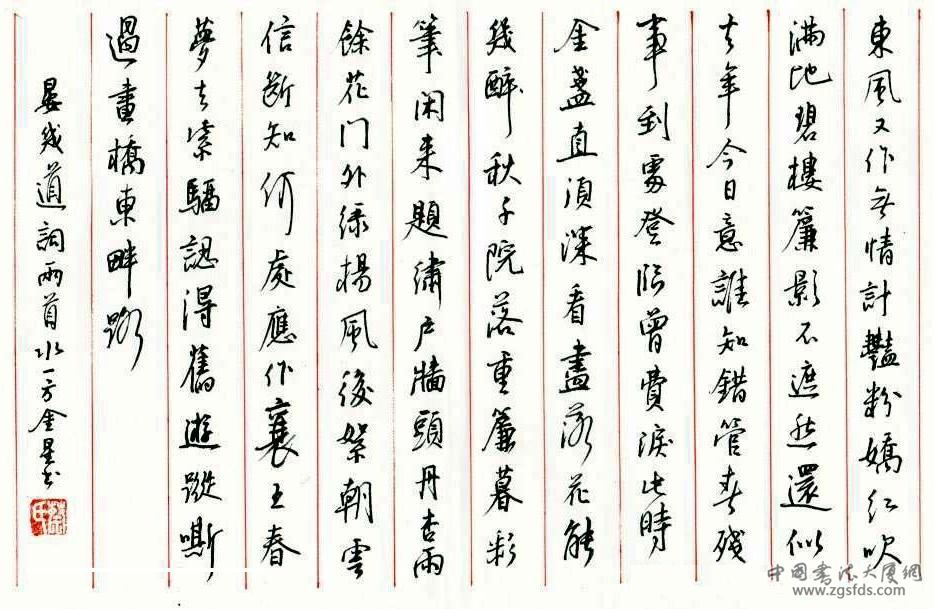 東風又作無情計豔粉嬌紅吹
滿地碧樓簾影不遮愁還似
去年今日意誰知錯管春殘
事到處登臨曾費淚此時
金盞直須深看盡落花能
幾醉 秋千院落重簾暮彩
筆閑來題繡戶牆頭丹杏雨
餘花門外綠楊風後絮朝雲
信斷知何處應作襄王春
夢去紫騮認得舊遊蹤嘶
過畫橋東畔路
晏幾道詞兩首水一方金星書
中國書法大廈網
www.zgsfds.com